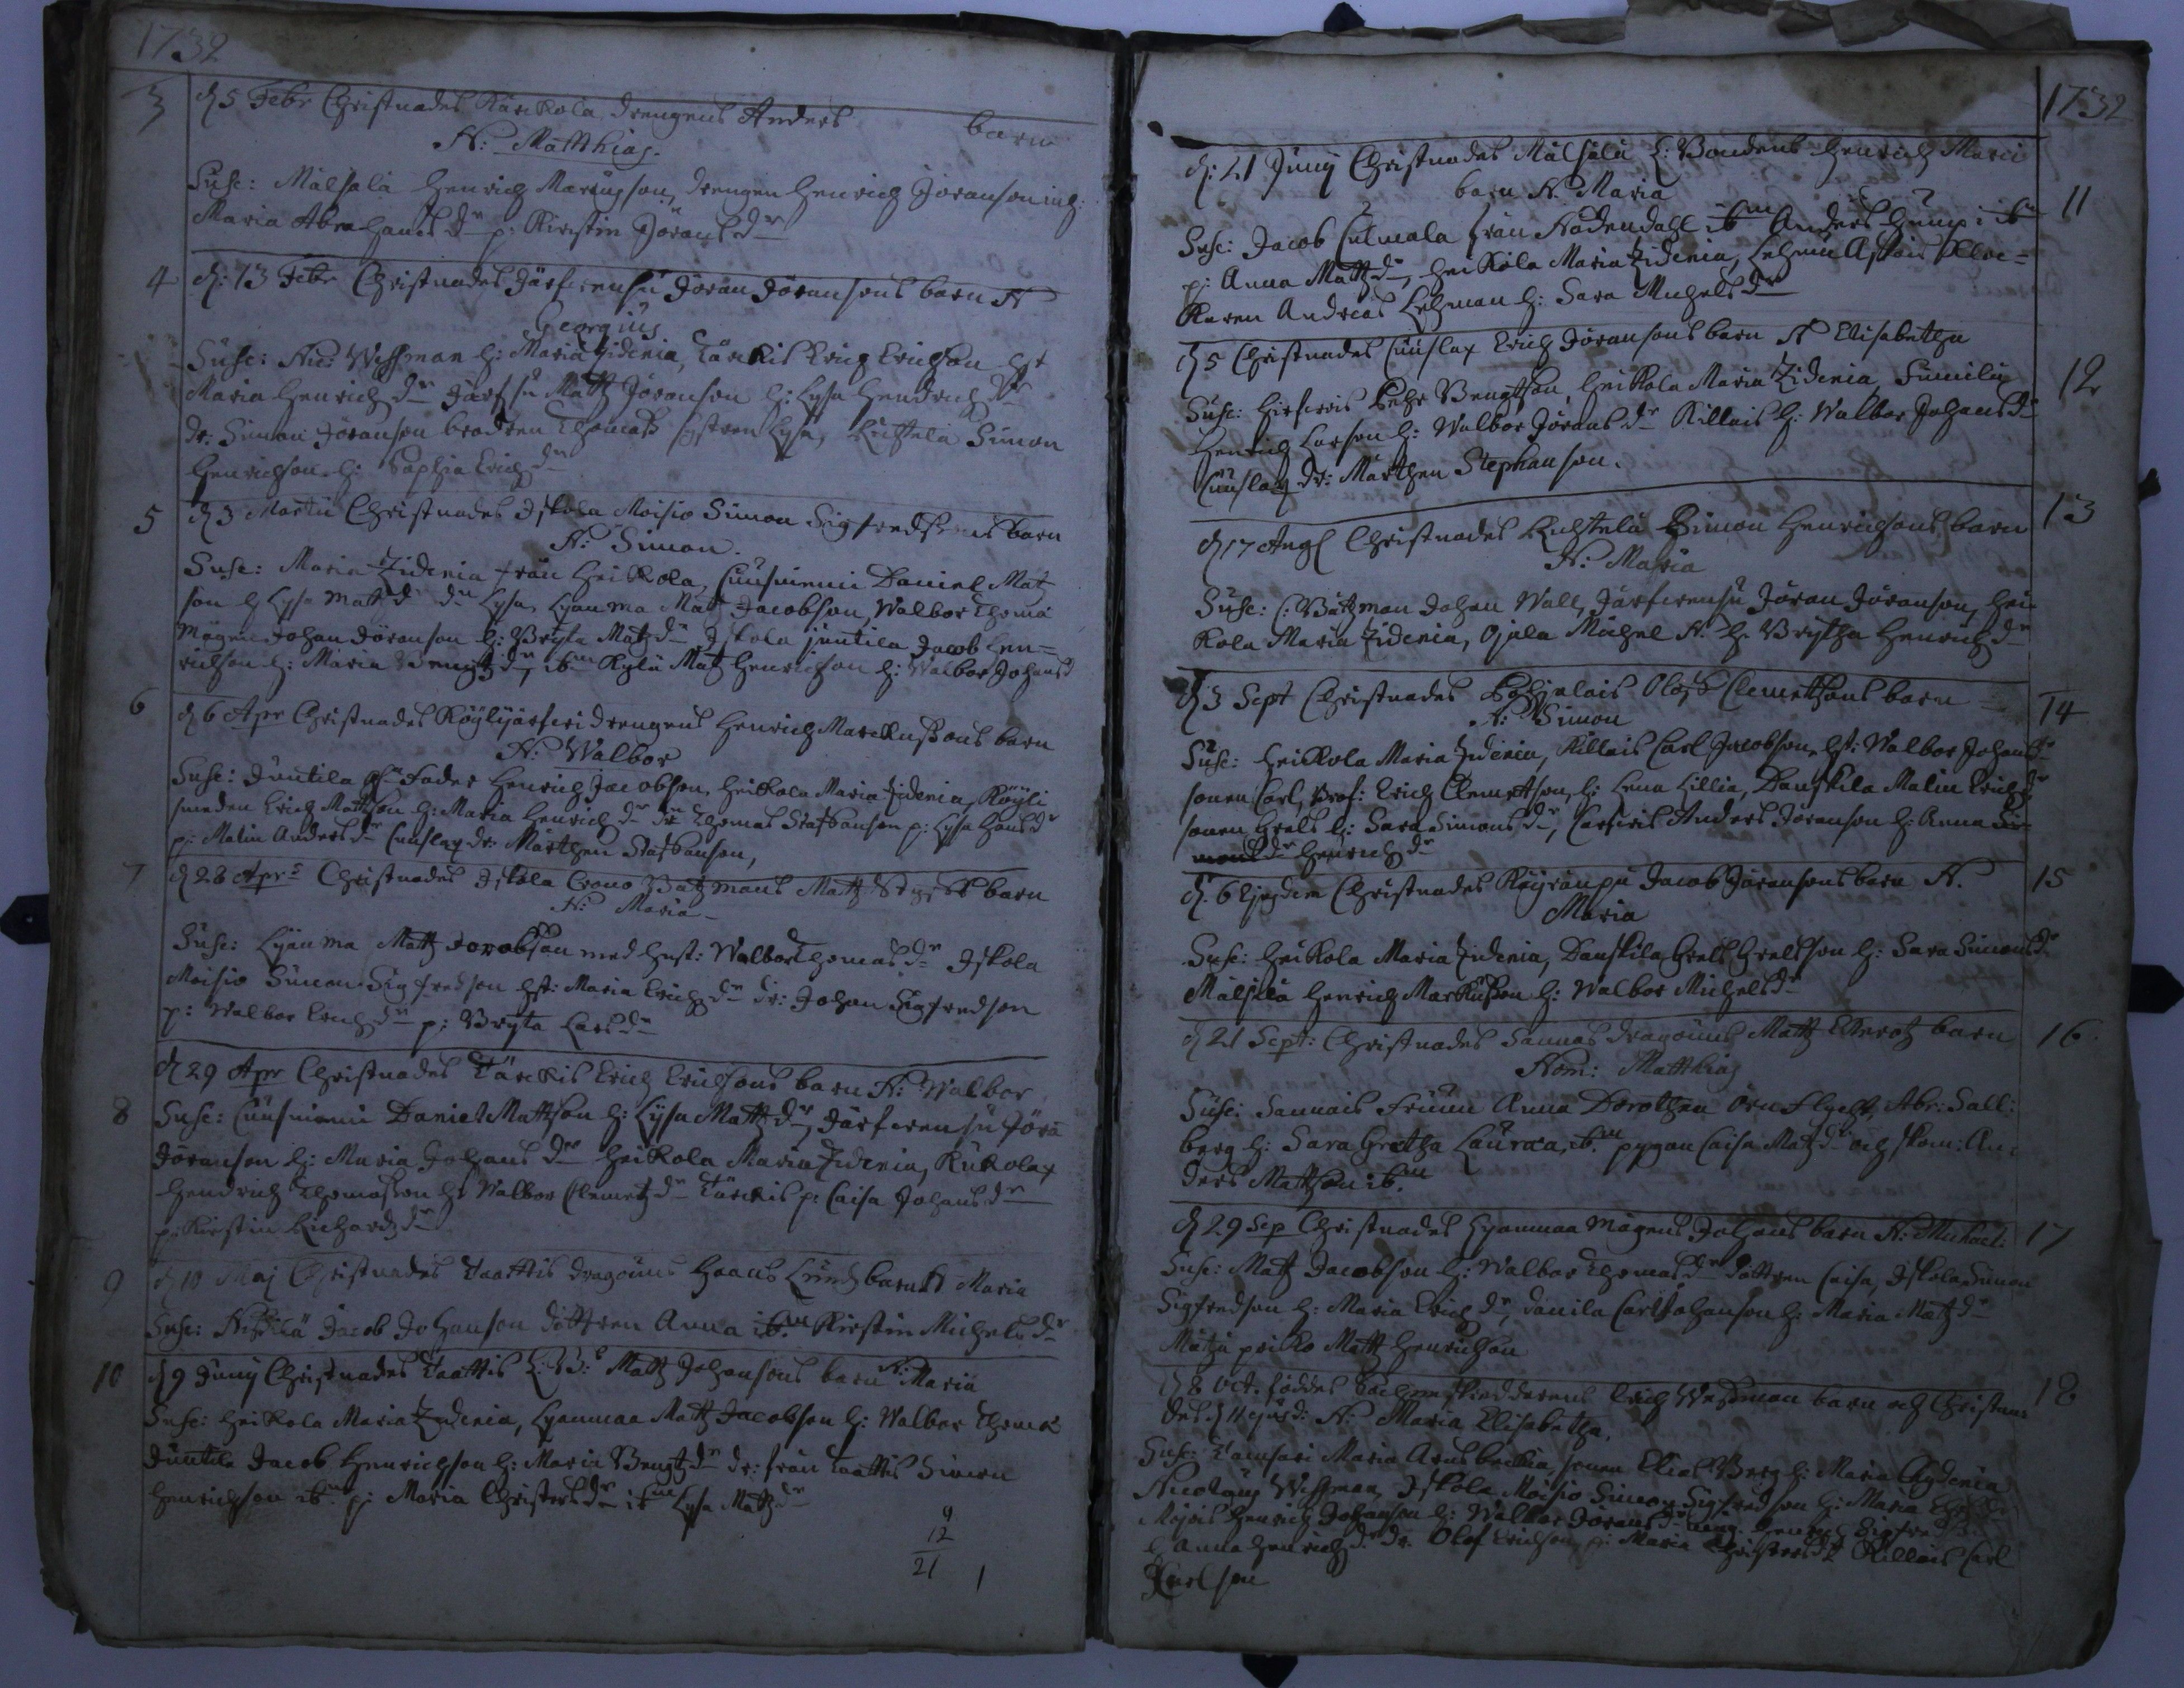 1732
3 d 5 Febr Christnades Karckola drengens Anders barn
N: Matthias.
Susc: Mälsälä Henrich Marcusson, drengen Henrich Jöranson
Maria Abrahams dr p: Kirstin Jörans dr
4 d: 13 Febr Christnades Järfwensu Jöran Jöransons barn N
Georgius
Susc: Nic: Wessman h: Maria Zidenia, Tärckis Erich Erichson hst
Maria Henrichs dr Järfsu Matz Jöranson h: Lysa Hendrichs dr
dr: Simon Jöranson brodren Thomas systren Lysa, Simon
Henrichson h: Sophia Erichs dr
5 d 3 Martii Christnades Iskola Moisio Simon Sigfredsons barn
N: Simon.
Susc: Maria Zidenia från Heikkola, Cuusniemi Daniel Mat
son h Lysa Matz dr Lysa, Lyanma Matz Jacobson, Walbor Thoma
Mågen Johan Jöranson h: Bryta Matz dr Iskola Juntila Jacob Hen=
richson h: Maria Bengtz dr, ibm Kylä Matz Henrichson h: Walbor Johans d
6 d 6 Apr Christnades Köylijärfwi drengens Henrich Marckussons barn
N: Walbor
Susc: Juntila Fader Henrich Jacobson, Heikkola Maria Zidenia, Köyli
Erich Mattson h: Maria Henrichs dr dr Thomas Staffanson p: Lysa Hans dr
p: Malin Anders dr Cuuslax dr: Mårthen Staffanson,
7 d 28 Apr: Christnades Iskola Crono Båtzmans Matz barn
N: Maria
Susc: Lyänma Matz Jacobson med hust: Walbor Thomas dr Iskola
Moisio Simon Sigfredson hst: Maria Erichs dr dr: Johan Sigfredson
p: Walbor Erichs dr p: Bryta Lars dr
8 d 29 Apr Christnades Tärckis Erich Erichsons barn N: Walbor
Susc: Cuusniemi Daniel Mattson h: Lysa Matz dr, Järfwensu Jöra
Jöranson h: Maria Johans dr Heikkola Maria Zidenia, Kukolax
Hendrich Thomasson h: Walbor Clemetz dr Tärckis p: Caisa Johans dr
p: Kirstin Richards dr
9 d 10 Maj Christnades Taattis dragouns Haans Lunds barn N Maria
Susc: Jacob Johanson dottren Anna ibm Kirstin Michels dr
10 d 9 Junij Christnades Taattis Matz Johansons barn N: Maria
Susc: Heikkola Maria Zidenia, Lyanmaa Matz Jacobson h: Walbor Thomæ
Juntila Jacob Henrichson h: Maria Bengtz dr dr: från Taattis Simon
Henrichson ibm p: Maria Christers dr ibm Lysa Matz dr
9
12
21 1
1732
d: 21 Junij Christnades Mälsälä Bondens Henrich Marci
barn N: Maria 11
Susc: Jacob Culmala från Nådendahl ibm Anders
p: Anna Matz dr, Heikkola Maria Zidenia,
Andreas Lehman h: Sara Michels dr
d 5 Christnades Cuuslax Erich Jöransons barn N Elisabetha
12
Susc: Pehr Bengtson, Heikkola Maria Zidenia,
Henrich Larson h: Walbor Jörans dr Killais h: Walbor Johans dr
Cuuslax dr: Mårthen Stephanson.
13
d 17 Aug Christnades Simon Henrichsons barn
N: Maria
Susc: C: Båtzman Johan Wall, Järfwensu Jöran Jöranson, Hei
kola Maria Zidenia, Ojala Michel N. h: Brytha Henrichs dr
d 3 Sept Christnades Pohjalais Olof Clemetsons barn 14
N: Simon
Susc: Heikkola Maria Zidenia, Killais Carl Jacobson, hst: Walbor Johans dr
sonen Carl, Erich Clemetson, h: Lena Lillia, Danskila Malin Erichs dr
sonen Grels h: Sara Simons dr, Anders Jöranson h: Anna Si
mons dr Henrichs dr
d. 6 Ejusdem Christnades Köyränpä Jacob Jöransons barn N. 15
Maria
Susc: Heikkola Maria Zidenia, Danskila Grels Grelsson h: Sara Simons dr
Mälsälä Henrich Markusson h: Walbor Michels dr
d 21 Sept: Christnades Sannas dragouns Matz barn 16.
Nom: Matthias
Susc: Sannais Fruun Anna Dorothea Örnflycht, Abr: Sall:
berg h: Sara Gretha Lauræa, ibm pygan Caisa Matz dr och skom: An=
ders Mattson ibm
d 29 Sep Christnades Lyanmaa Mågens Johans barn N: Michael: 17
Susc: Matz Jacobson h: Walbor Thomas dr dottren Caisa, Iskola Simon
Sigfredson h: Maria Erichs dr, Danila Carl Johanson h: Maria Matz dr
Matz Henrichson
d 8 Oct. föddes skreddarens Erich Wessman barn och Christna= 18
des d 11 ejusd: N: Maria Elisabetha.
Susc: Tamsari Maria sonen Elias Berg h: Maria
Nicolaus Wessman, Iskola Moisio Simon Sigfredson h: Maria
Henrich Johanson h: Walbor Jörans dr Henrich Sigfredson
h Anna Henrichs dr dr. Olof Erichson p: Maria Christers dr Killais Carl
Karlson